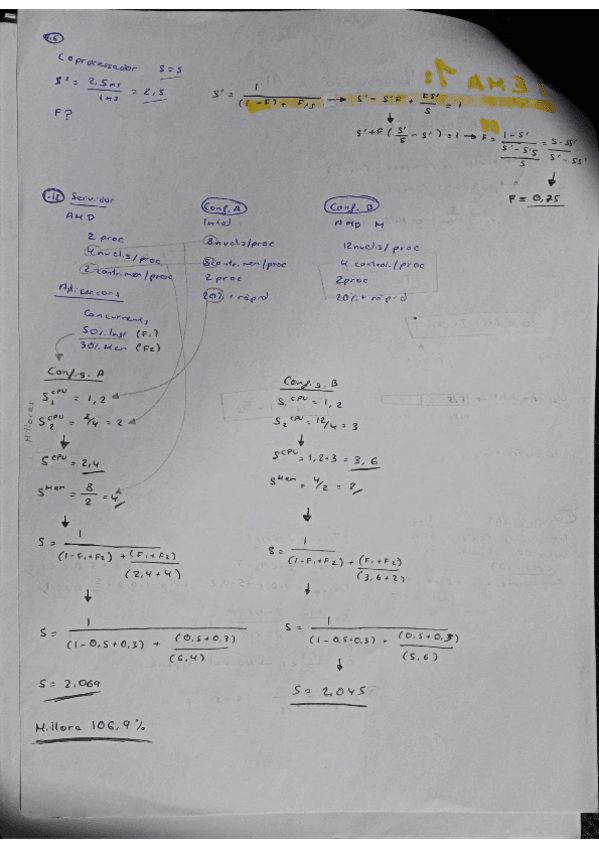 Coprocessador S=5
S' = 2,5ms / 1ms = 2,5
F?
S' = 1 / ((1-F) + F/S) → S' - S'F + FS'/S = 1
S' + F (S'/S - S') = 1 → F = (1-S') / ((S' - S'S)/S) = (S - SS') / (S' - SS')
F = 0,75
1.12 Servidor
AMD
2 proc
4 nuclis/proc
2 contr. mem/proc
Aplicacions
Concurrents
50% Instr (F1)
30% Mem (F2)
Config. A
Intel
8 nuclis/proc
8 contr. mem/proc
2 proc
20% + ràpid
Config. B
AMD M
12 nuclis/proc
4 control./proc
2 proc
20% + ràpid
Config. A
Millores
S1^CPU = 1,2
S2^CPU = 8/4 = 2
S^CPU = 2,4
S^Mem = 8/2 = 4
S = 1 / ((1-F1+F2) + (F1+F2)/(2,4+4))
S = 1 / ((1-0,5+0,3) + (0,5+0,3)/(6,4))
S = 2,069
Millora 106,9%
Config. B
S1^CPU = 1,2
S2^CPU = 12/4 = 3
S^CPU = 1,2·3 = 3,6
S^Mem = 4/2 = 2
S = 1 / ((1-F1+F2) + (F1+F2)/(3,6+2))
S = 1 / ((1-0,5+0,3) + (0,5+0,3)/(5,6))
S = 2,045